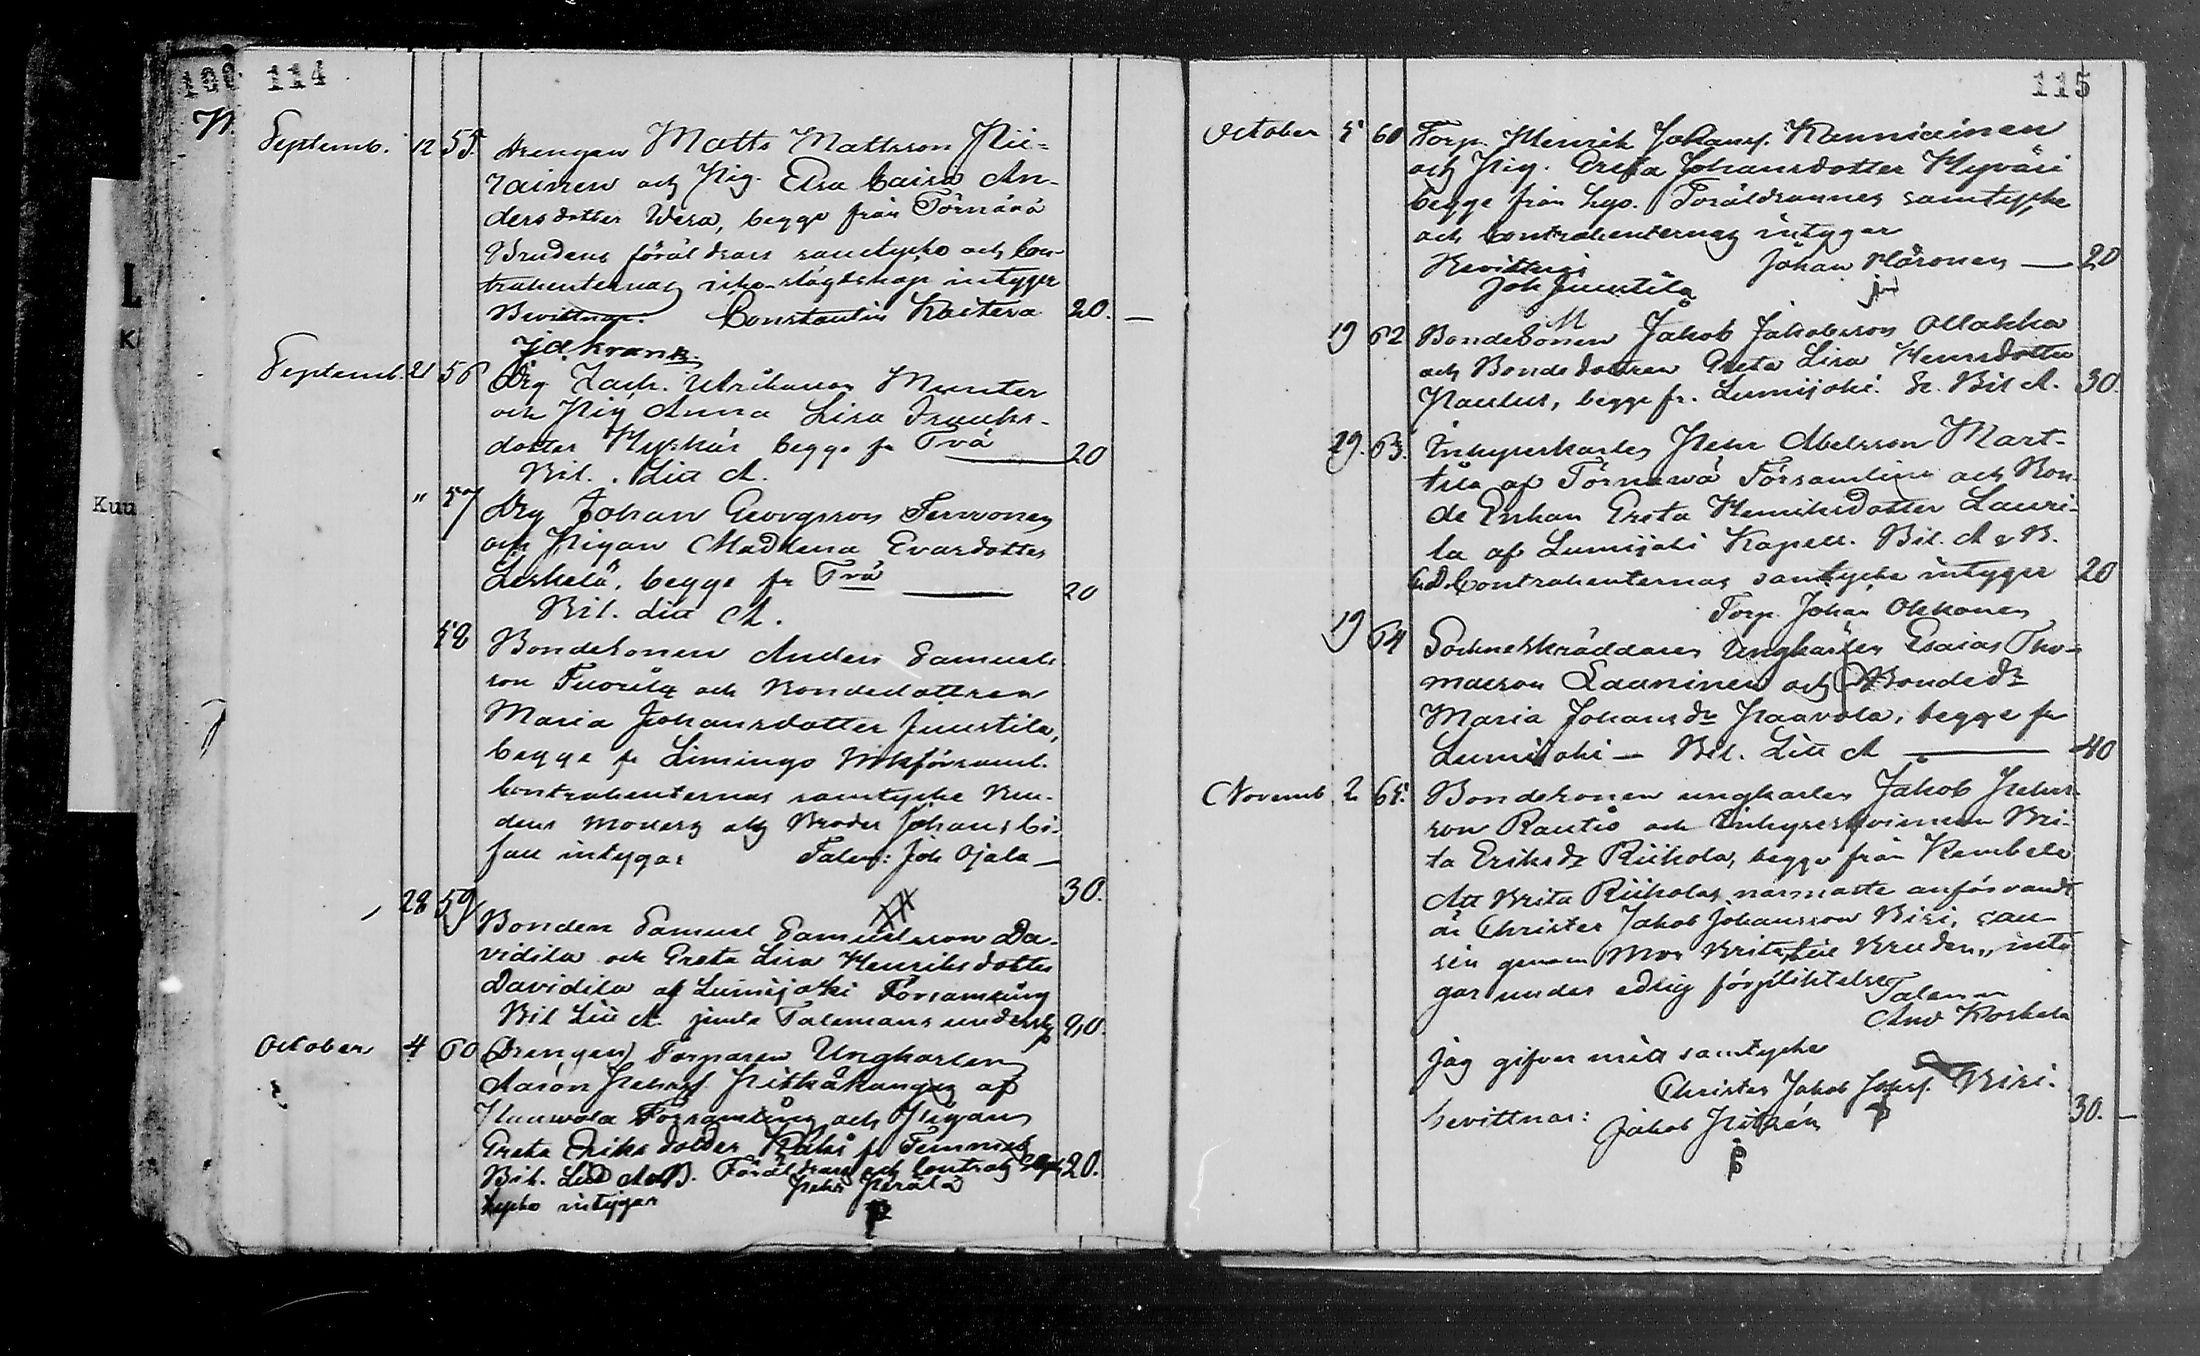 114
Septemb. 12 55. Drengen Matts Mattsson Pii-
rainen och Pig. Elsa Caisa An-
dersdotter Wesa, begge från Törnävä
Brudens föräldrars samtycke och Con-
trahenternas icke-slägtskap intygar
Bevittnar. Constantin Kaitera 20. —
Jd. Krank
Septemb. 21 56 Drg Zach. Ulrikason Munter
och Pig Anna Lisa Fredriks-
dotter Hyrkäs begge fr Trå 20
Bil. Litt A.
" 57 Drg Johan Georgsson Tervonen
och Pigan Madlena Evasdotter
Leskelä, begge fr Trå — 20
Bil. Litt A.
58 Bondesonen Anders Samuels-
son Tuorila och Bondedottren
Maria Johansdotter Juustila,
begge fr Limingo Mrkförsaml.
Contrahenternas samtycke Bru-
dens moders och Broder Johans bi-
fall intygar Talem: Joh Ojala —
30.
28 59 Bonden Samuel Samuelsson Da-
vidila och Greta Lisa Henriksdotter
Davidila af Lumijoki Församling
Bil Litt A. jemte Talemans underskr 20.
October 4 60 (Drengen) Torparen Ungkarlen
Aaron Pehrss. Pitkäkangas af
Paavola Församling och Pigan
Greta Eriksdotter Räihä fr Temmes
Bil. Litt A & B. Föräldrars och Contrah sam- 20.
tycke intygar Pehr Perälä
115
October 5 60 Torp. Henrik Johanss. Ronniainen
och Pig. Greta Johansdotter Hyväri
begge från Lgo. Föräldrarnes samtycke
och Contrahenternas intygar
Bevittnar Johan Härönen — 20
Joh Juustila
19 62 Bondesonen Jakob Jakobsson Ollakka
och Bondedottren Greta Lisa Henrsdotter
Paulus, begge fr. Lumijoki. Se Bil A. 30.
19. 63. Inhyseskarlen Pehr Abelsson Mart-
tila af Törnävä Församling och Bon-
de Enkan Greta Henriksdotter Lauri-
la af Lumijoki Kapell. Bil. A & B.
Contrahenternas samtycke intygar 20
Torp. Johan Okkonen
19 64 Sockneskräddaren Ungkarlen Esaias Tho-
masson Laaninen och Bondedr
Maria Johansdr Paavola, begge fr
Lumijoki — Bil. Litt A — 40
Novemb. 2 65. Bondesonen ungkarlen Jakob Pehrs-
son Rautio och Inhysesqvinnan Bri-
ta Eriksdr Riikola, begge från Kembele
Att Brita Riikolas närmaste anförvandt
är Christer Jakob Johansson Biri, cou-
sin genom Mor Brita till Bruden, inty-
gar under edlig förplihtelse
Taleman
And Koskela
Jag gifver mitt samtycke
Christer Jakob Johss. Biri.
bevittnar: Jakob Pitkän 30. —